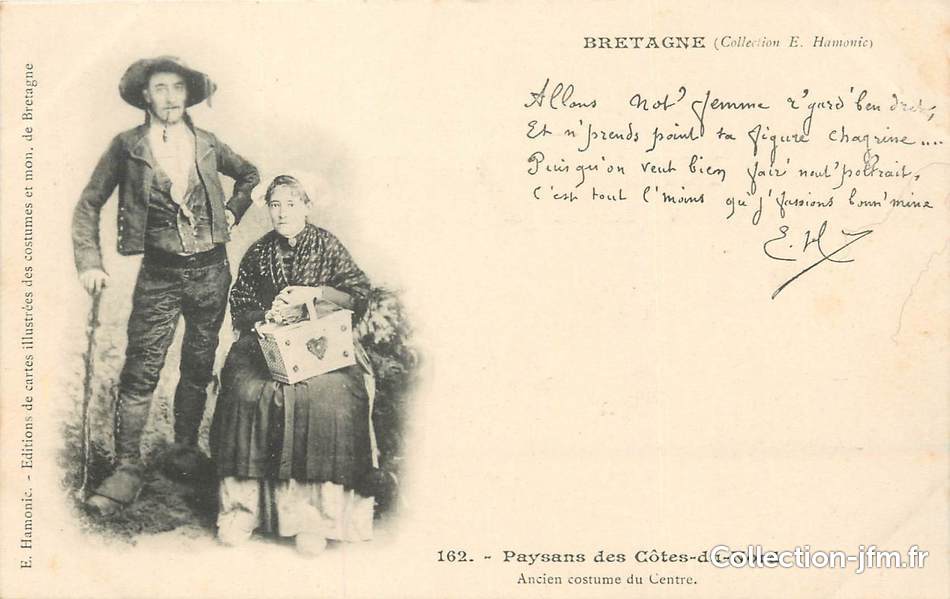 BRETAGNE (Collection E. Hamonic)
Allons not' femme r'gard' ben dret,
Et n'prends point ta figure chagrine....
Puisqu'on veut bien fair' nout' poltrait,
C'est tout l'moins qu'j'fassions bonn'mine
E. H
E. Hamonic. - Editions de cartes illustrées des costumes et mon. de Bretagne
162. - Paysans des Côtes-du-Nord
Ancien costume du Centre.
Collection-jfm.fr